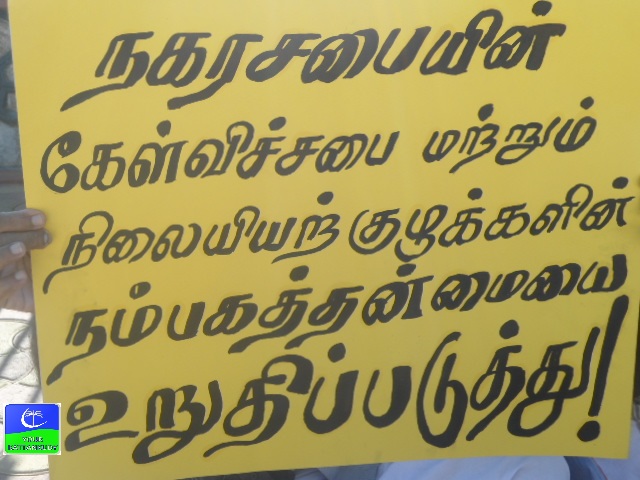 நகரசபையின்
கேள்விச்சபை மற்றும்
நிலையியற் குழுக்களின்
நம்பகத்தன்மையை
உறுதிப்படுத்து!